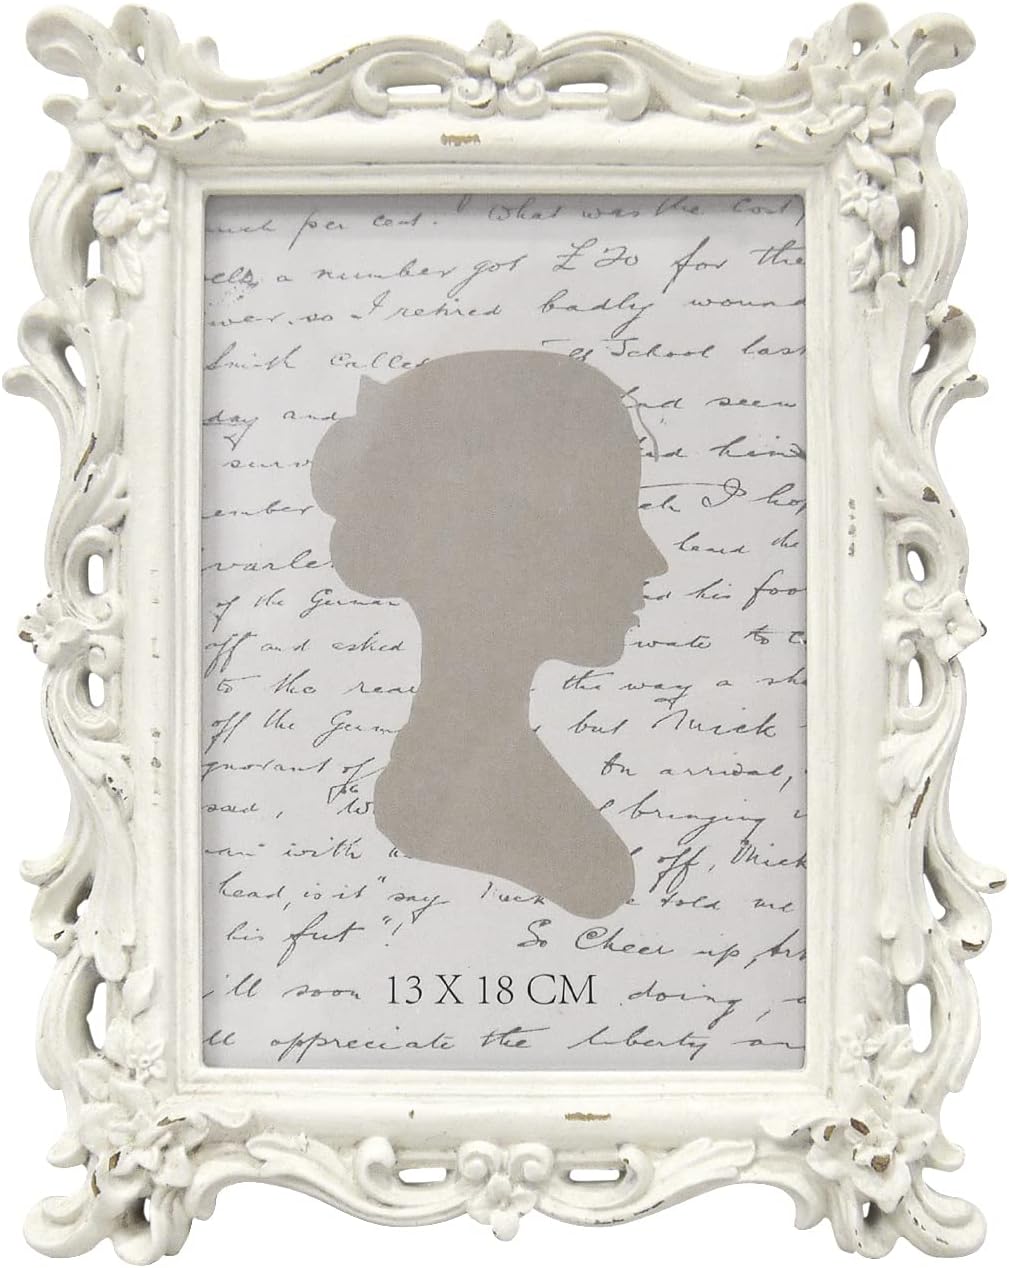 much per cent. What was the cost
a number got £20 for the
so I retired badly wound
Smith called School last
day and had seen
had hin
ember ch I hop
varle heard the
of the German d his foo
off and asked ivate to c
to the rea the way a sha
off the Germ but Mick
ignorant of On arrival,
said, W bringing
with off, Mick
head, is it" say Tuck told me
his feet"! So Cheer up, Art
i'll soon 13 X 18 CM doing,
ll appreciate the liberty an